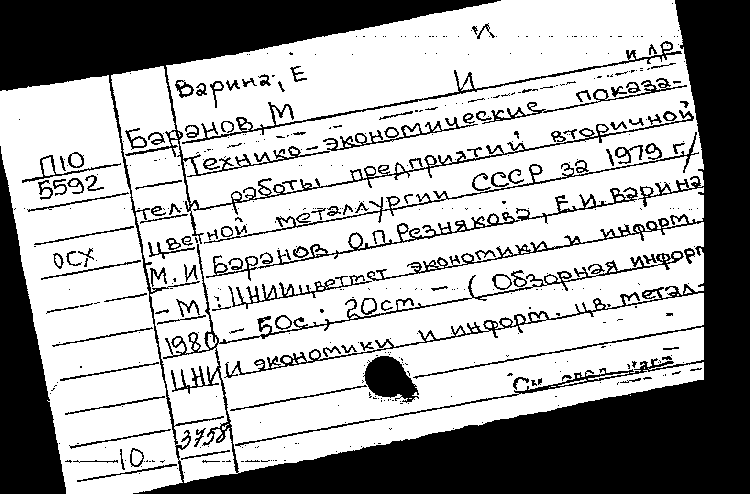 Варина, Е И
Баранов, М И и др.
П10
5592
Технико-экономические показа-
тели работы предприятий вторичной
цветной металлургии СССР за 1979 г./
ОСХ
М.И Баранов, О.П. Резнякова, Е.И. Варина
- М.: ЦНИИцветмет экономики и информ.,
1980. - 50с.; 20см. - (Обзорная информ
ЦНИИ экономики и информ. цв. метал-
См
10
3758